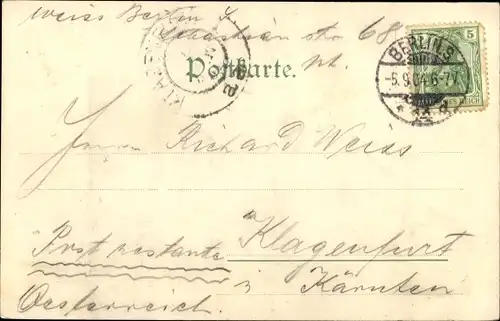 Weiss Berlin S
Sebastian str 68
Postkarte.
BERLIN S
-5.9.04.6-7V.
5
REICH
Herrn Richard Weiss
Klagenfurt
Post restante
in Kärnten
Oesterreich.